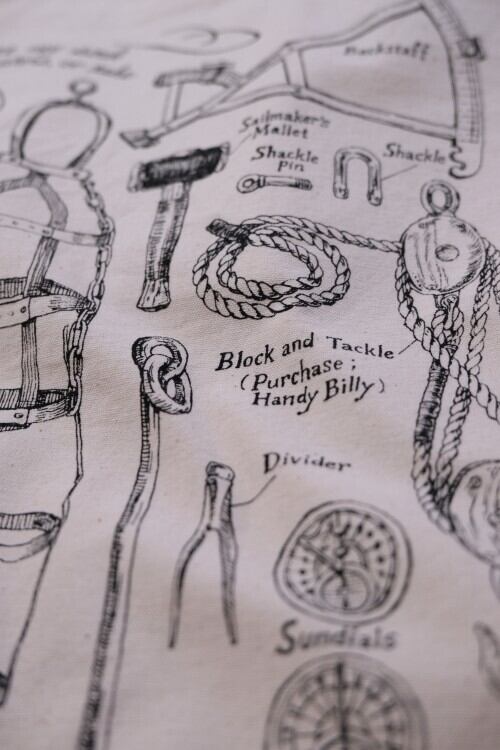 Backstaff
Sailmaker's
Mallet
Shackle
Pin
Shackle
Block and Tackle
(Purchase;
Handy Billy)
Divider
Sundials